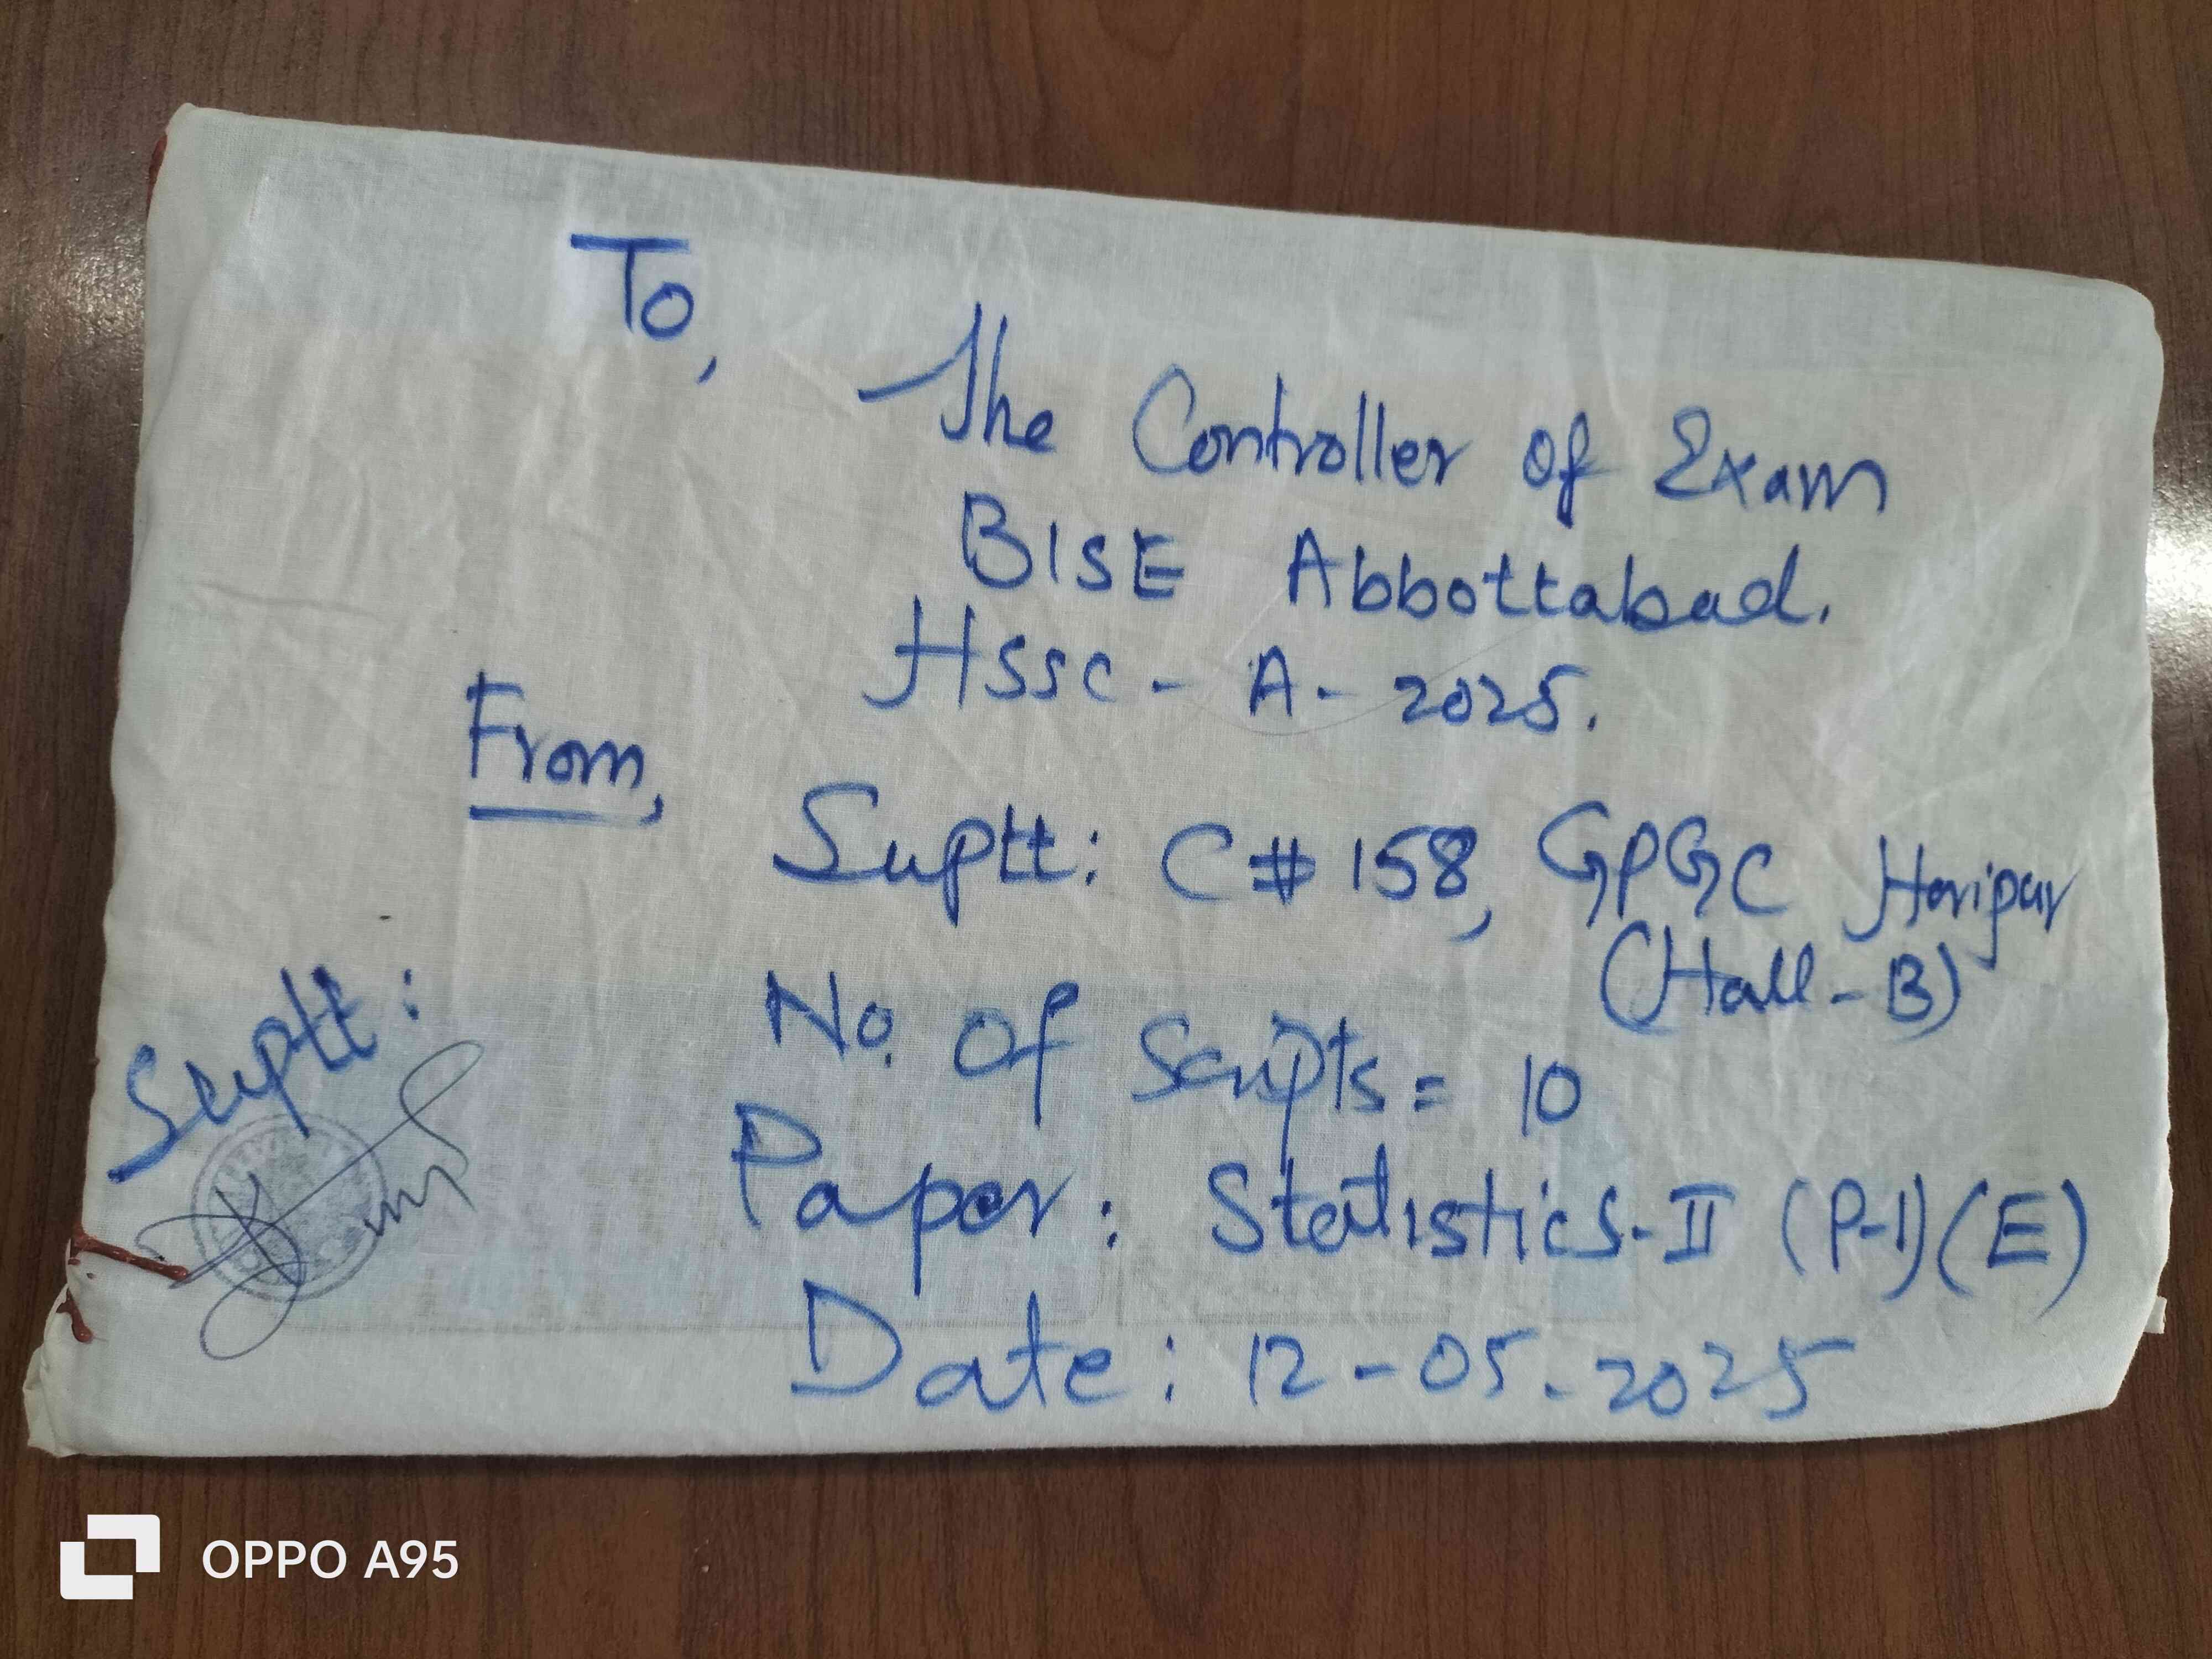 To,
The Controller of Exam
BISE Abbottabad.
Hssc - A - 2025.
From,
Suptt: C # 158, GPGC Haripur
(Hall - B)
No. Of Scripts = 10
Suptt:
Paper: Statistics - II (P-1) (E)
Date: 12 - 05 - 2025
OPPO A95